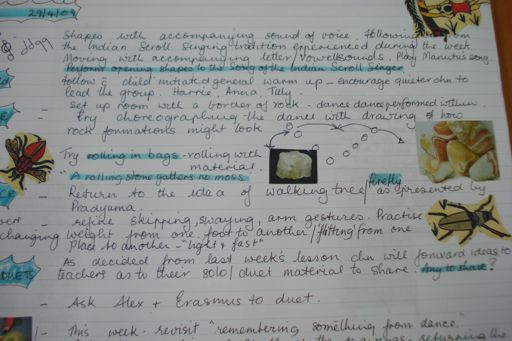 29/4/09
Shapes with accompanying sound of voice. Following from
the Indian Scroll Singing tradition experienced during the week
Moving with accompanying letter/vowel sounds. Play Manutis song.
Perform opening shapes to the Song of the Indian Scroll Singer
follow c̄ child initiated general warm up - encourage quieter chn to
lead the group. Harrie, Anna, Tilly
Set up room with a border of rock - dance dance performed within.
- Try choreographing the dance with drawing of how
rock formations might look
Try rolling in bags - rolling with
material.
"A rolling stone gathers no moss
firefly
- Return to the idea of walking tree/ as presented by
Pradyuma.
- refine skipping, swaying, arm gestures. Practise
changing weight from one foot to another / 'flitting' from one
place to another - "light & fast"
DUETS
As decided from last week's lesson chn will forward ideas to
teachers as to their solo/duet material to share. Any to share?
- Ask Alex + Erasmus to duet.
- This week - revisit "remembering something from dance."
returning the